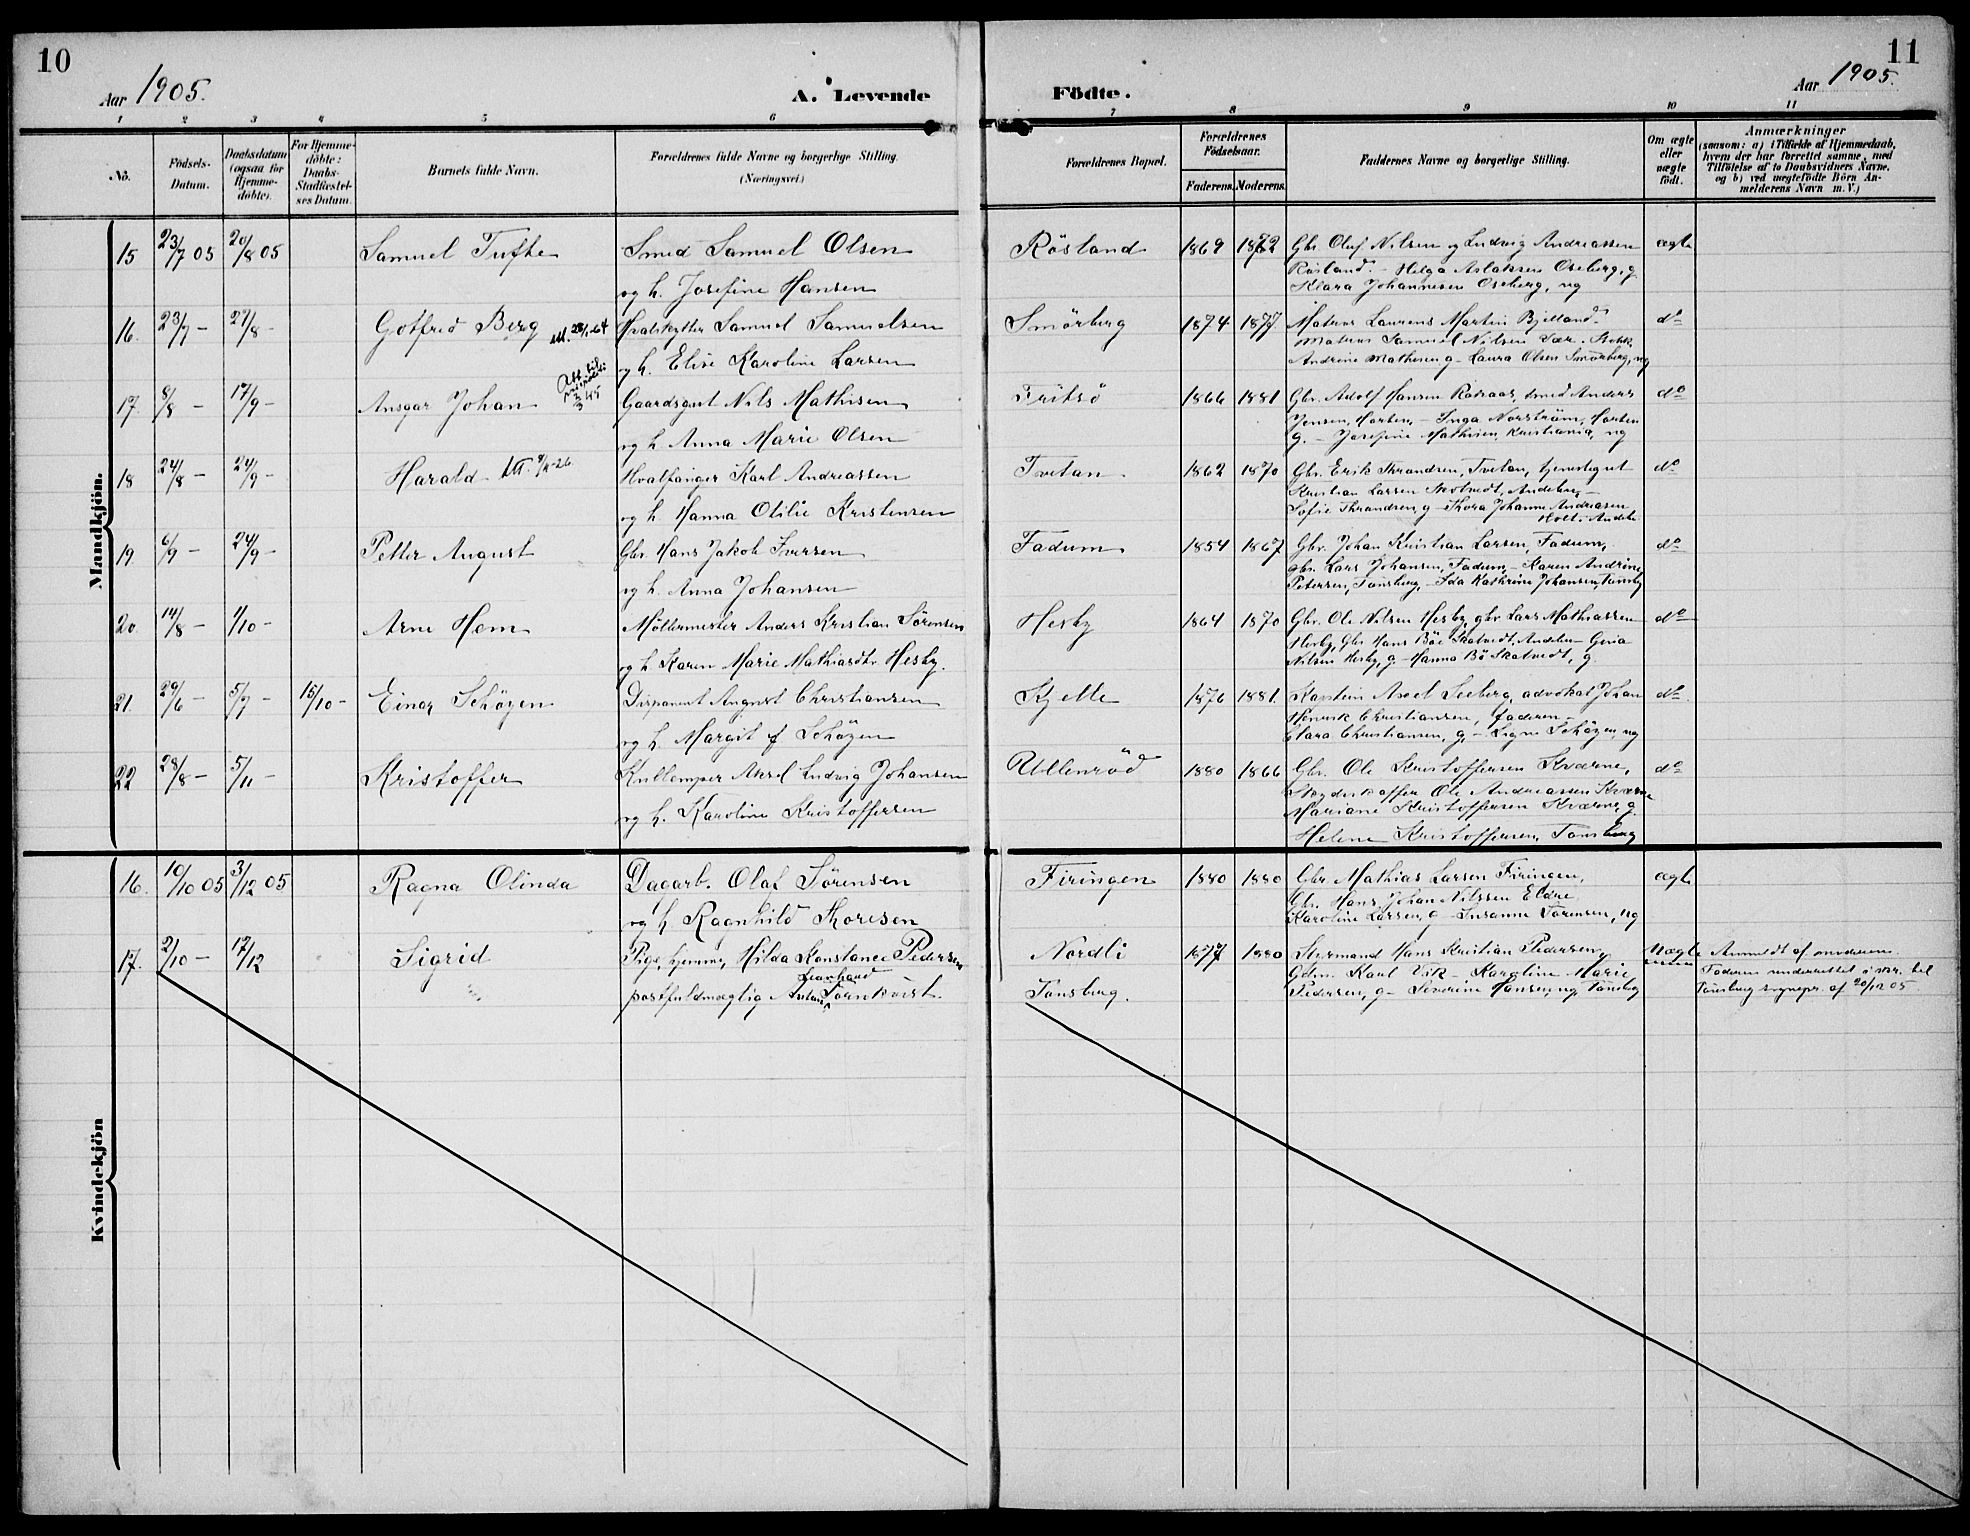 10
11
Aar 1905.
A. Levende Födte.
Aar 1905.
1 2 3 4 5 6 7 8 9 10 11
No.
Födsels-Datum.
Daabsdatum (ogsaa for Hjemmedöbte).
For Hjemmedöbte: Daabs-Stadfæstelses Datum.
Barnets fulde Navn.
Forældrenes fulde Navne og borgerlige Stilling.
(Næringsvei.)
Forældrenes Bopæl.
Forældrenes Födselsaar.
Faderens. Moderens.
Faddernes Navne og borgerlige Stilling.
Om ægte eller uægte födt.
Anmærkninger
(saasom: a) i Tilfælde af Hjemmedaab,
hvem der har forrettet samme, med
Tilföielse af to Daabsvidners Navne,
og b) ved uægtefödte Börn Anmelderens Navn m. V.)
Mandkjön.
15 23/7 05 20/8 05 Samuel Tufte Smed Samuel Olsen Rösland 1869 1872 Gbr. Oluf Nilsen og Ludvig Andreassen ægte
og h. Josefine Hansen Rösland. – Helga Aslaksen Oseberg, g
Klara Johannesen Oseberg, ug
16. 23/7 – 27/8 – Gotfred Berg Hvalskytter Samuel Samuelsen Smörberg 1874 1877 Matros Laurens Martin Bjelland – do
og h. Elise Karoline Larsen Matros Samuel Nilsen Sær. Stokk
Andrine Mathisen g – Laura Olsen Smörberg, ug
17. 8/8 – 17/9 – Ansgar Johan 3/3 45 Gaardsgut Nils Mathisen Fritsö 1866 1881 Gbr. Adolf Hansen Ramaas, smed Anders do
og h. Anna Marie Olsen Jensen, Horten, – Inga Norström, Horten
g. – Josefine Mathisen, Kristiania, ug
18 24/8 – 24/9 – Harald Hvalfanger Karl Andreassen Tvetan 1862 1870 Gbr. Erik Thrandsen, Tvetan, tjenestegut do
og h. Hanna Otilie Kristensen Kristian Larsen Skotvedt, Andebu, –
Sofie Thrandsen, g – Thora Johanne Andreasen
Holt, Andebu
19 6/9 – 24/9 – Petter August Gbr. Hans Jakob Iversen Fadum 1854 1867 Gbr. Johan Kristian Larsen, Fadum, do
og h. Anna Johansen gbr. Lars Johansen, Fadum, – Karen Andrine
Petersen, Tønsberg, – Ida Kathrine Johansen, Tønsberg
20. 14/8 – 1/10 – Arne Hem Møllermester Anders Kristian Sörensen Hesby 1864 1870 Gbr. Ole Nilsen Hesby, gbr Lars Mathiassen do
og h Karen Marie Mathiasdtr Hesby. Hesby, Gbr Hans Böe Skatvedt, Andebu –
Nilsen Hesby, g – Hanna Bö Skatvedt, g
21. 29/6 – 5/7 – 15/10 – Einar Schøyen Disponent August Christiansen Kjelle 1876 1881. Kaptein Axel Seeberg, advokat Johan do
og h. Margit f Schøyen Henrik Christiansen, faderen –
Clara Christiansen, g, – Signe Schøyen, ug
22 28/8 – 5/11 – Kristoffer Kullemper Aksel Ludvig Johansen Ullenröd 1880 1866 Gbr. Ole Kristoffersen Kværne, do
og h. Karoline Kristoffersen Ole Andreassen Kværne
Mariane Kristoffersen Kværne, g.
Helene Kristoffersen, Tønsberg
Kvindekjön
16. 10/10 05 3/12 05 Ragna Olinda Dagarb. Olaf Sørensen Firingen 1880 1880 Gbr. Mathias Larsen Firingen, ægte
og h Ragnhild Thoresen Gbr. Hans Johan Nilssen Eldre
Karoline Larsen, g – Susanne Sørensen, ug
17. 2/10 – 17/12 Sigrid Pige, hjemme, Hilda Konstance Pedersen Nordli 1877 1880 Styrmand Hans Kristian Pedersen, Uægte Anmeldt af moderen.
Leonhard
postfuldmægtig Anton Törnkvist. Tønsberg. Gdm. Karl Vik – Karoline Marie Faderen underrettet i skr. til
Pedersen, g – Severine Hansen, ug, Tønsberg Tønsberg sognepr. af 20/12 05